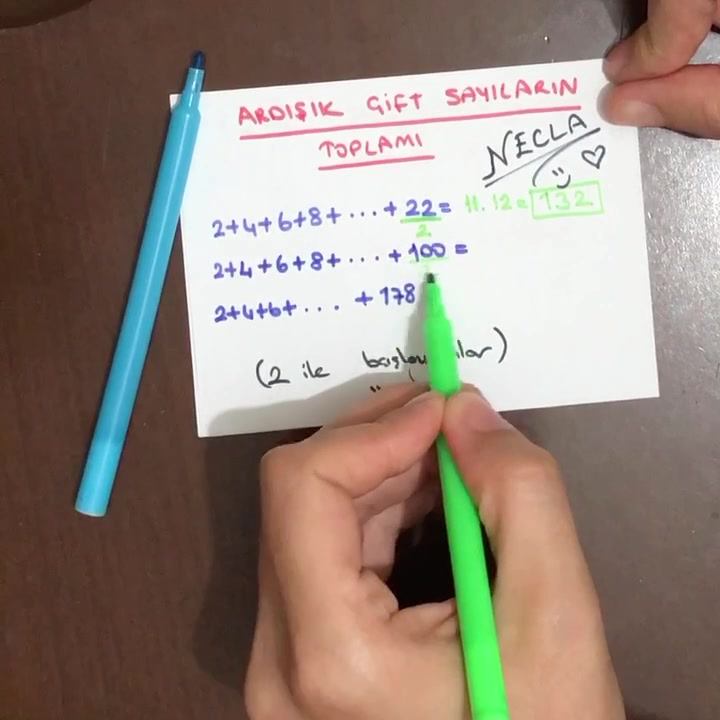 ARDIŞIK ÇİFT SAYILARIN
TOPLAMI
NECLA
2+4+6+8+...+22= 11.12=132
2
2+4+6+8+...+100=
2+4+6+... +178
(2 ile